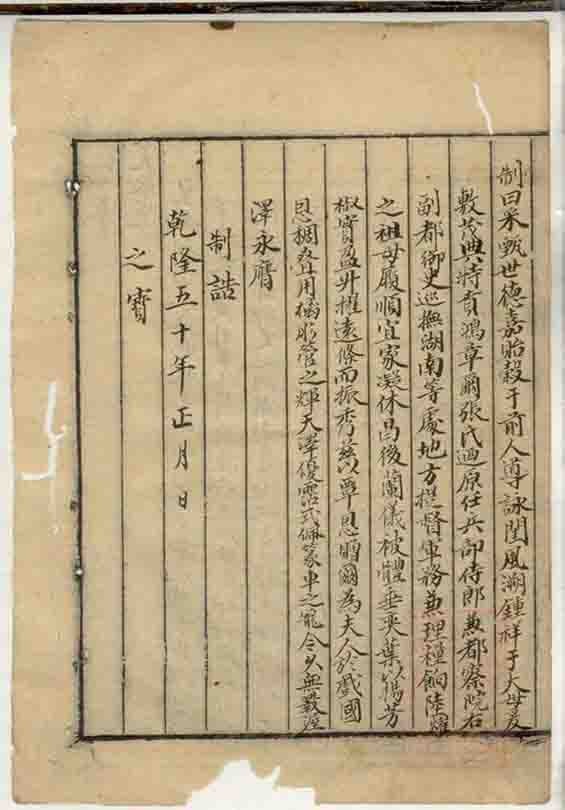 制曰采甄世德嘉貽穀于前人尊詠閨風溯鍾祥于大母爰
敷茂典特賁鴻章爾張氏迺原任兵部侍郎兼都察院右
副都御史巡撫湖南等處地方提督軍務兼理糧餉陸燿
之祖母履順宜家凝休昌後蘭儀被體垂奕葉以揚芳
椒實盈升擢遠條而振秀茲以覃恩贈爾為夫人於戲國
恩稠疊用揚彤管之輝天澤優霑式佩篆車之寵令聞無斁渥
澤永膺
制誥
乾隆五十年正月 日
之寶